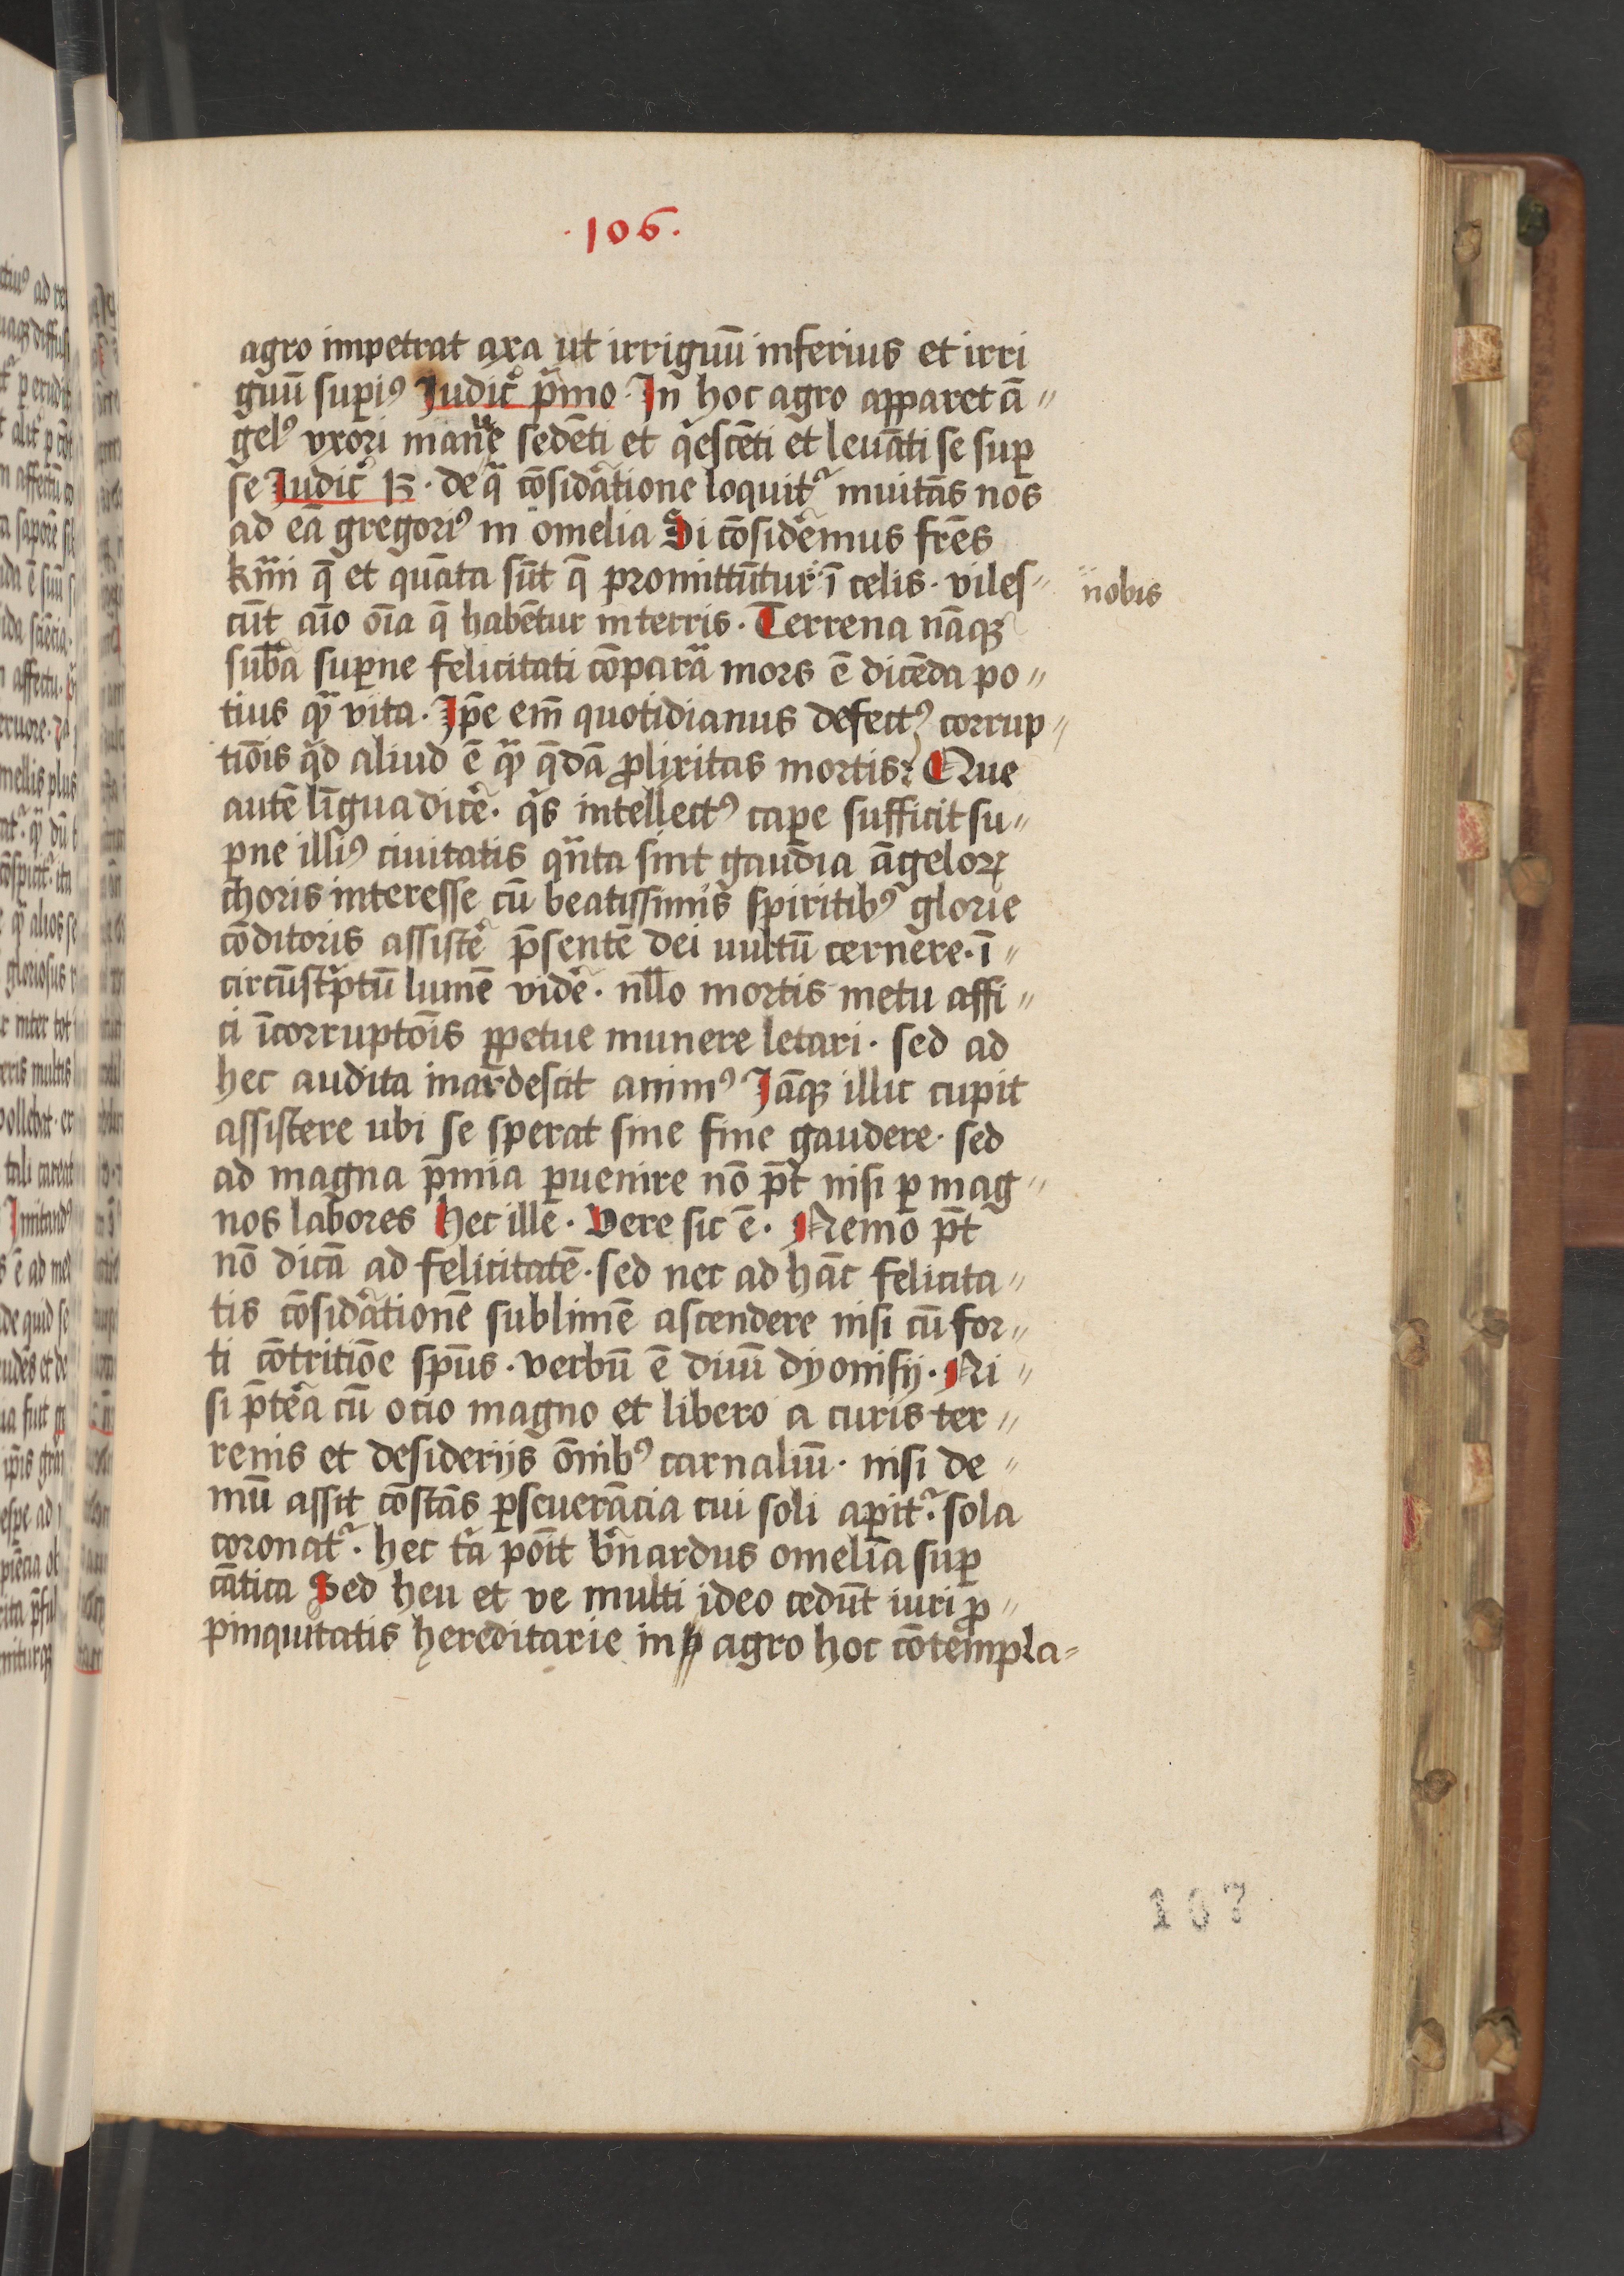 .106.
agro impetrat axa ut irriguū inferius et irri
guū sup̲iꝰ Judic̉ pͥmo . In hoc agro apparet ā〃
gelꝰ vxori manue sedēti et qͥescēti et levāti se sup̲
se Judic̉ 13 . de qͣ cōsidatͣione loquitᷣ inuitās nos
ad eā gregoriꝰ in omelia Si cōsidem̉us fr̄es
km̄i q̄ et quāta sūt q̄ promittūtur ī celis . viles〃
nobis
cūt aīo oīa q̄ habētur in terris . Terrena nāqꝫ
subᷓa sup̲ne felicitati cōparatͣ mors ē dicēda po〃
tius qᷓꝫ vita . Ip̄e em̄ quotidianus defectꝰ corrup〃
tiōis qͥd aliud ē qᷓꝫ q̄dā ꝓlixitas mortis? Que
autē līgua dic̉e . qͥs intellectꝰ cap̲e sufficit su〃
p̲ne illiꝰ ciuitatis qn̄ta sint gaudia āgeloꝝ
choris interesse cū beatissimis spiritibꝰ glorie
cōditoris assist̉e p̄sentē dei uultū cernere . ī〃
circūscͥptū lumē vid̉e . nll̄o mortis metu affi〃
ci īcorruptōis p̲petue munere letari . sed ad
hec audita inardescit animꝰ Jāqꝫ illic cupit
assistere ubi se sperat sine fine gaudere . sed
ad magna p̄mia p̲uenire nō pōt nisi p̲ mag〃
nos labores Hec ille . Vere sic ē . Nemo pōt
nō dicā ad felicitatē . sed nec ad hāc felicita〃
tis cōsidatͣionē sublimē ascendere nisi cū for〃
ti cōtritiōe sp̄us . verbū ē diui dyonisij . Ni〃
si p̄tea̓ cū ocio magno et libero a curis ter〃
renis et desiderijs ōnibꝰ carnaliū . nisi de〃
mū assit cōstās p̲seuerācia cui soli ap̲itᷣ . sola
coronatᷣ . hec tͣa pōit b̓nardus omelia sup̲
cātica Sed heu et ve multi ideo cedūt iuri ꝓ〃
pinquitatis hereditarie in agro hoc cōtempla〃
107